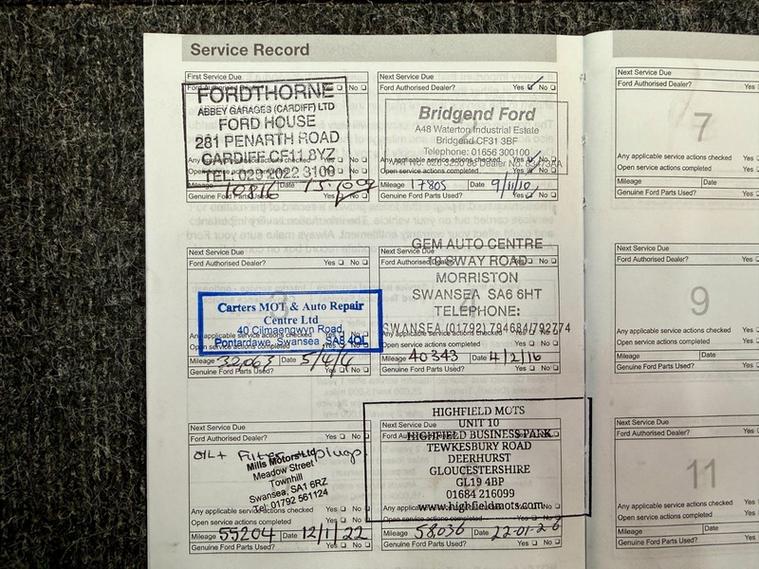 Service Record
First Service Due
Ford Authorised Dealer? Yes No
FORDTHORNE
ABBEY GARAGES (CARDIFF) LTD
FORD HOUSE
281 PENARTH ROAD
CARDIFF CF11 8YZ
TEL: 029 2022 3100
Mileage 10816 Date
Genuine Ford Parts Used? Yes No
Next Service Due
Ford Authorised Dealer? Yes No
Bridgend Ford
A48 Waterton Industrial Estate
Bridgend CF31 3BF
Telephone: 01656 300100
Any applicable service actions checked Yes No
Open service actions completed Yes No
Mileage 17805 Date 9/11/10
Genuine Ford Parts Used? Yes No
Next Service Due
Ford Authorised Dealer? Yes No
Carters MOT & Auto Repair
Centre Ltd
40 Cilmaengwyn Road,
Pontardawe, Swansea SA8 4QL
Open service actions completed Yes No
Mileage 32063 Date 5/4/14
Genuine Ford Parts Used? Yes No
Next Service Due
Ford Authorised Dealer? Yes No
GEM AUTO CENTRE
SWAY ROAD
MORRISTON
SWANSEA SA6 6HT
TELEPHONE:
SWANSEA (01792) 794684/792774
Any applicable service actions checked Yes No
Open service actions completed Yes No
Mileage 40343 Date 4/2/16
Genuine Ford Parts Used? Yes No
Next Service Due
Ford Authorised Dealer? Yes No
OIL+ Filter plugs
Mills Motors Ltd
Meadow Street
Townhill
Swansea, SA1 6RZ
Tel: 01792 561124
Any applicable service actions checked Yes No
Open service actions completed Yes No
Mileage 55204 Date 12/1/22
Genuine Ford Parts Used? Yes No
Next Service Due
Ford Authorised Dealer? Yes No
HIGHFIELD MOTS
UNIT 10
HIGHFIELD BUSINESS PARK
TEWKESBURY ROAD
DEERHURST
GLOUCESTERSHIRE
GL19 4BP
01684 216099
www.highfieldmots.com
Open service actions completed Yes No
Mileage 58036 Date 22-01-26
Genuine Ford Parts Used? Yes No
Next Service Due
Ford Authorised Dealer? Yes
7
Any applicable service actions checked Yes
Open service actions completed Yes
Mileage Date
Genuine Ford Parts Used? Yes
Next Service Due
Ford Authorised Dealer? Yes
9
Any applicable service actions checked Yes
Open service actions completed Yes
Mileage Date
Genuine Ford Parts Used? Yes
Next Service Due
Ford Authorised Dealer? Yes
11
Any applicable service actions checked Yes
Open service actions completed Yes
Mileage Date
Genuine Ford Parts Used? Yes